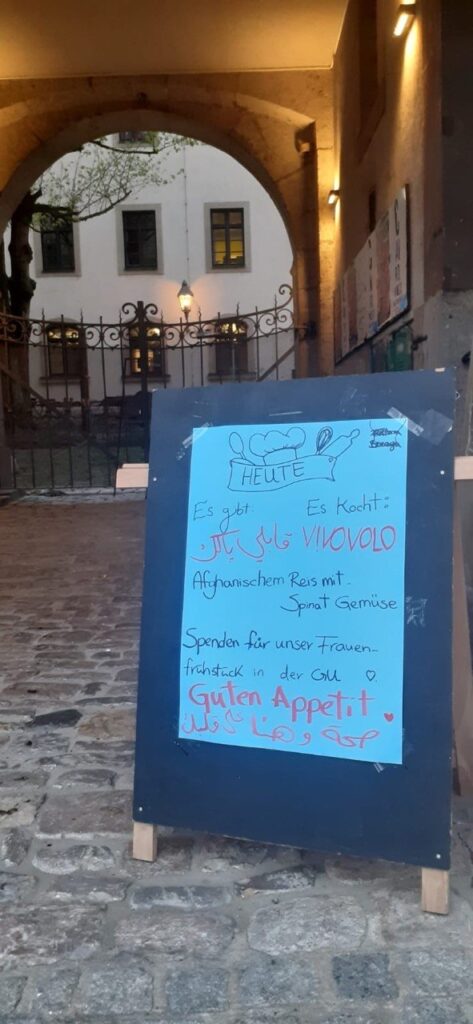 HEUTE
Es gibt: Es Kocht:
قابلي پالان VIVOVOLO
Afghanischem Reis mit
Spinat Gemüse
Spenden für unser Frauen-
frühstück in der GU ♡
Guten Appetit ♥
صحة و هنا